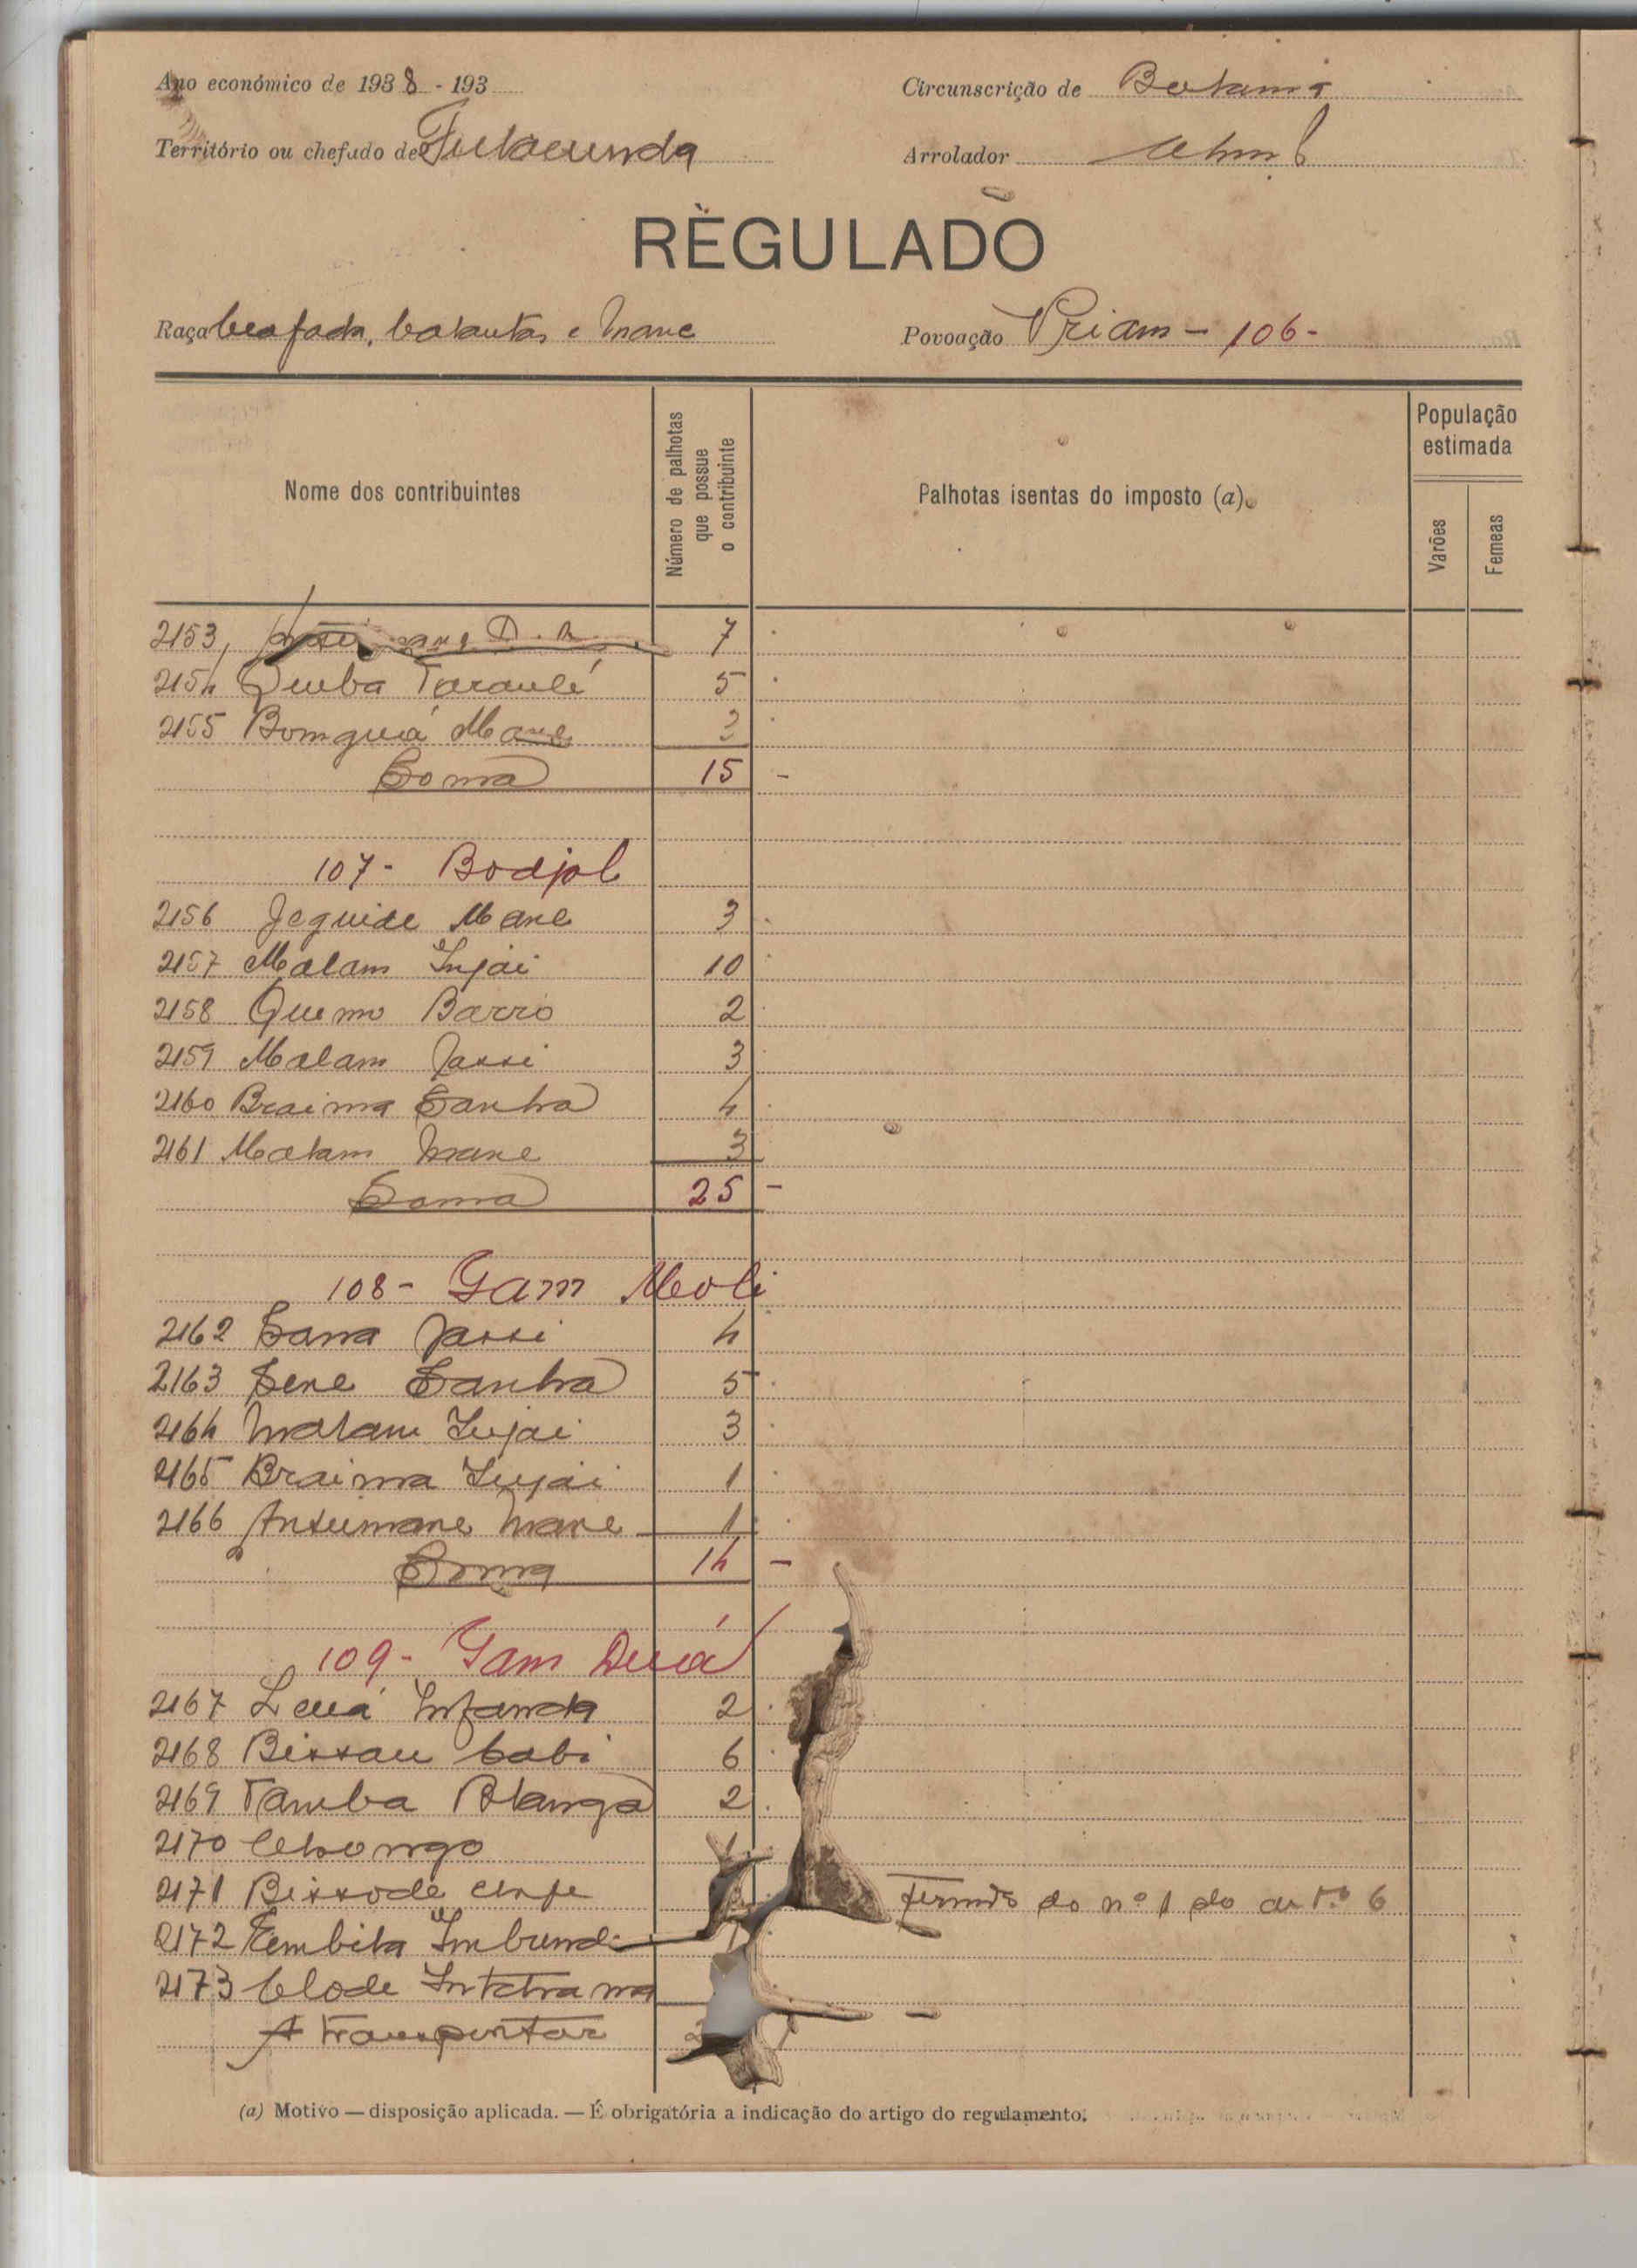 Ano económico de 1938 - 193
Circunscrição de Bolama
Território ou chefado de Fulacunda
Arrolador
REGULADO
Raça beafada, balantas e mane
Povoação Priam - 106 -
Nome dos contribuintes
Número de palhotas que possue o contribuinte
Palhotas isentas do imposto (a)
População estimada
Varões
Femeas
2153 7
2154 Quebá Taraulé 5
2155 Bomguiá Mane 3
Soma 15 -
107 - Bodjol
2156 Jeguide Mane 3
2157 Malam Injai 10
2158 Quemo Barro 2
2159 Malam Jassi 3
2160 Braima Sanha 4
2161 Malam Mane 3
Soma 25 -
108 - Gam Moli
2162 Sana Jassi 4
2163 Sene Sanha 5
2164 Malam Injai 3
2165 Braima Injai 1
2166 Ansumane Mane 1
Soma 14 -
109 - Gam Duá
2167 Leuá Infanda 2
2168 Bissau Cabi 6
2169 Tamba Blanga 2
2170 1
2171 Bissodé do nº 1 do artº 6
2172 Imbunde
2173 Clode
A transportar
(a) Motivo — disposição aplicada. — É obrigatória a indicação do artigo do regulamento.